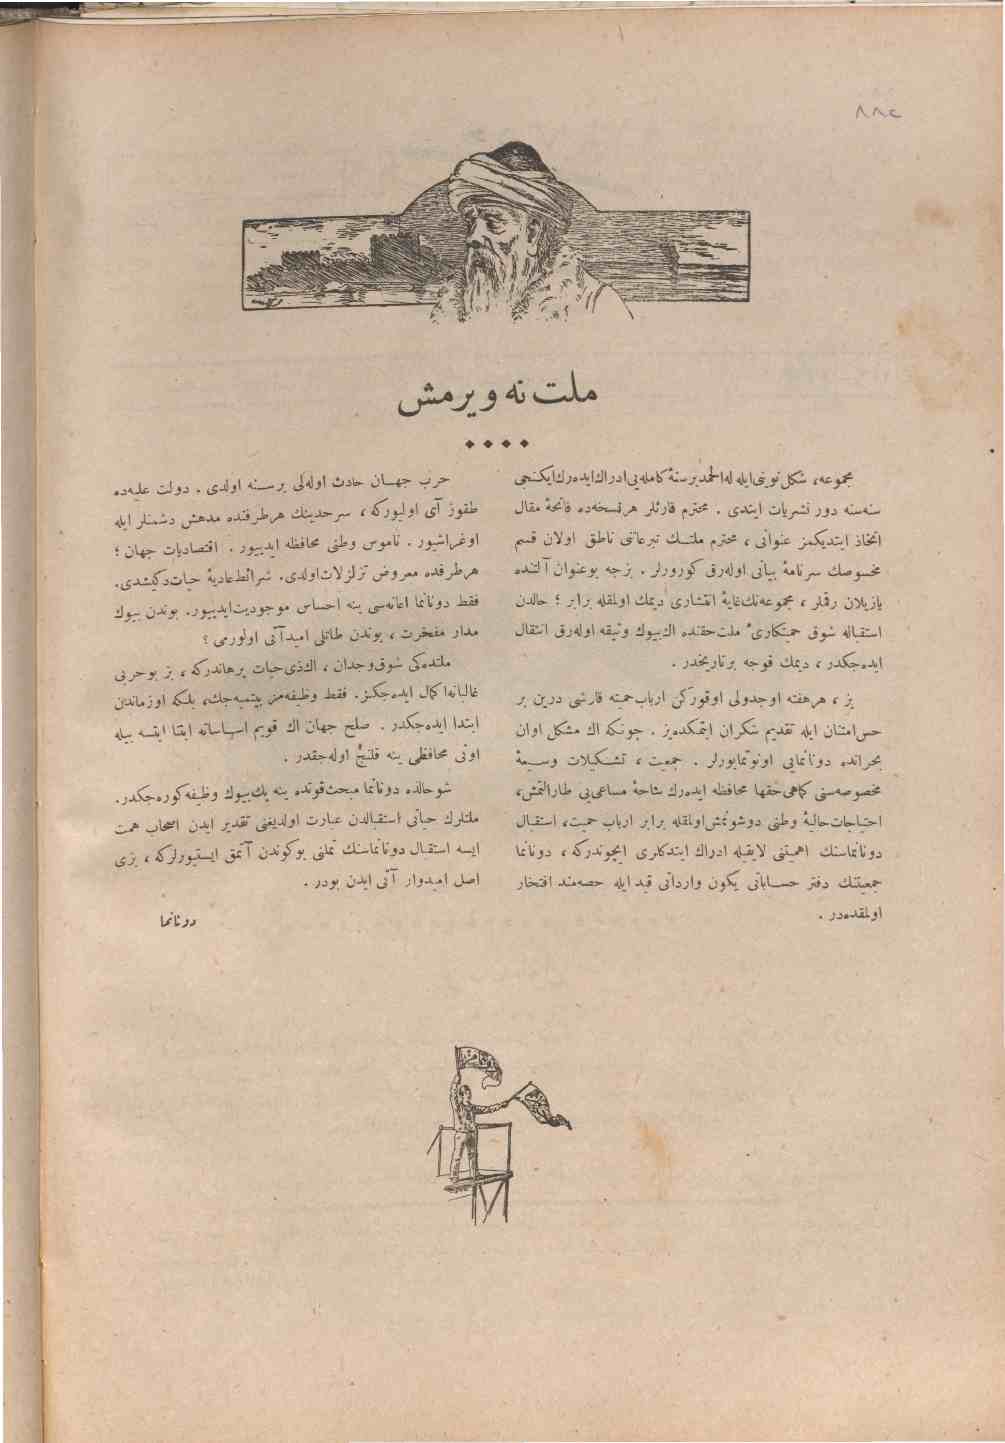 ٨٨٤
ملت نه ویرمش
مجموعه، شکل نوینی ایله له الحمد بر سنهٔ کامله‌یی ادراك ایده‌رك ایکنجی
سنه‌سنه دور نشریات ایتدی . محترم قارئلر هر نسخه‌ده فاتحهٔ مقال
اتخاذ ایتدیکمز عنوانی ، محترم ملتـك تبرعاتنی ناطق اولان قسم
مخصوصك سرنامهٔ بیانی اوله‌رق کورورلر . بزجه بو عنوان آلتنده
یازیلان رقملر ، مجموعه‌نك غایهٔ انتشاری دیمك اولمقله برابر ؛ حالدن
استقباله شوق حمیتکاریٔ ملت حقنده اك بیوك وثیقه اوله‌رق انتقال
ایده‌جکدر ، دیمك قوجه بر تاریخدر .
بز ، هر هفته او جدولی اوقورکن ارباب حمیته قارشی درین بر
حس امتنان ایله تقدیم شکران ایتمکده‌یز . چونکه اك مشکل اوان
بحرانده دونانمایی اونوتمایورلر . جمعیت ، تشـکیلات وسـیعهٔ
مخصوصه‌سنی کماهی حقها محافظه ایده‌رك ساحهٔ مساعی‌یی طارالتمش،
احتیاجات حالیهٔ وطنی دوشونمش اولمقله برابر ارباب حمیت، استقبال
دونانماسنك اهمیتنی لایقیله ادراك ایتدکلری ایچوندرکه ، دونانما
جمعیتنك دفتر حسـاباتی یکون وارداتی قید ایله حصه‌مند افتخار
اولمقده‌در .
حرب جهـان حادث اوله‌لی بر سـنه اولدی . دولت علیه‌ده
طقوز آی اولیورکه ، سرحدینك هر طرفنده مدهش دشمنلر ایله
اوغراشیور . ناموس وطنی محافظه ایدییور . اقتصادیات جهان ؛
هر طرفده معروض تزلزلات اولدی. شرائط عادیهٔ حیات دکیشدی.
فقط دونانما اعانه‌سی ینه احساس موجودیت ایدییور. بوندن بیوك
مدار مفخرت ، بوندن طاتلی امید آتی اولورمی ؟
ملتده‌کی شوق وجدان ، اك ذی حیات برهاندرکه ، بز بو حربی
غالبانه اکمال ایده‌جکیز. فقط وظیفه‌مز بیتمیه‌جك، بلکه اوزماندن
ابتدا ایده‌جکدر . صلح جهان اك قویم اسـاساته ابتنا ایتسه بیله
اونی محافظی ینه قلنج اوله‌جقدر .
شو حالده دونانما مبحث قوتده ینه پك بیوك وظیفه کوره‌جکدر.
ملتلرك حیاتی استقبالدن عبارت اولدیغنی تقدیر ایدن اصحاب همت
ایسه استقبال دونانماسنك تملنی بوکوندن آتمق ایستیورلرکه ، بزی
اصل امیدوار آتی ایدن بودر .
دونانما